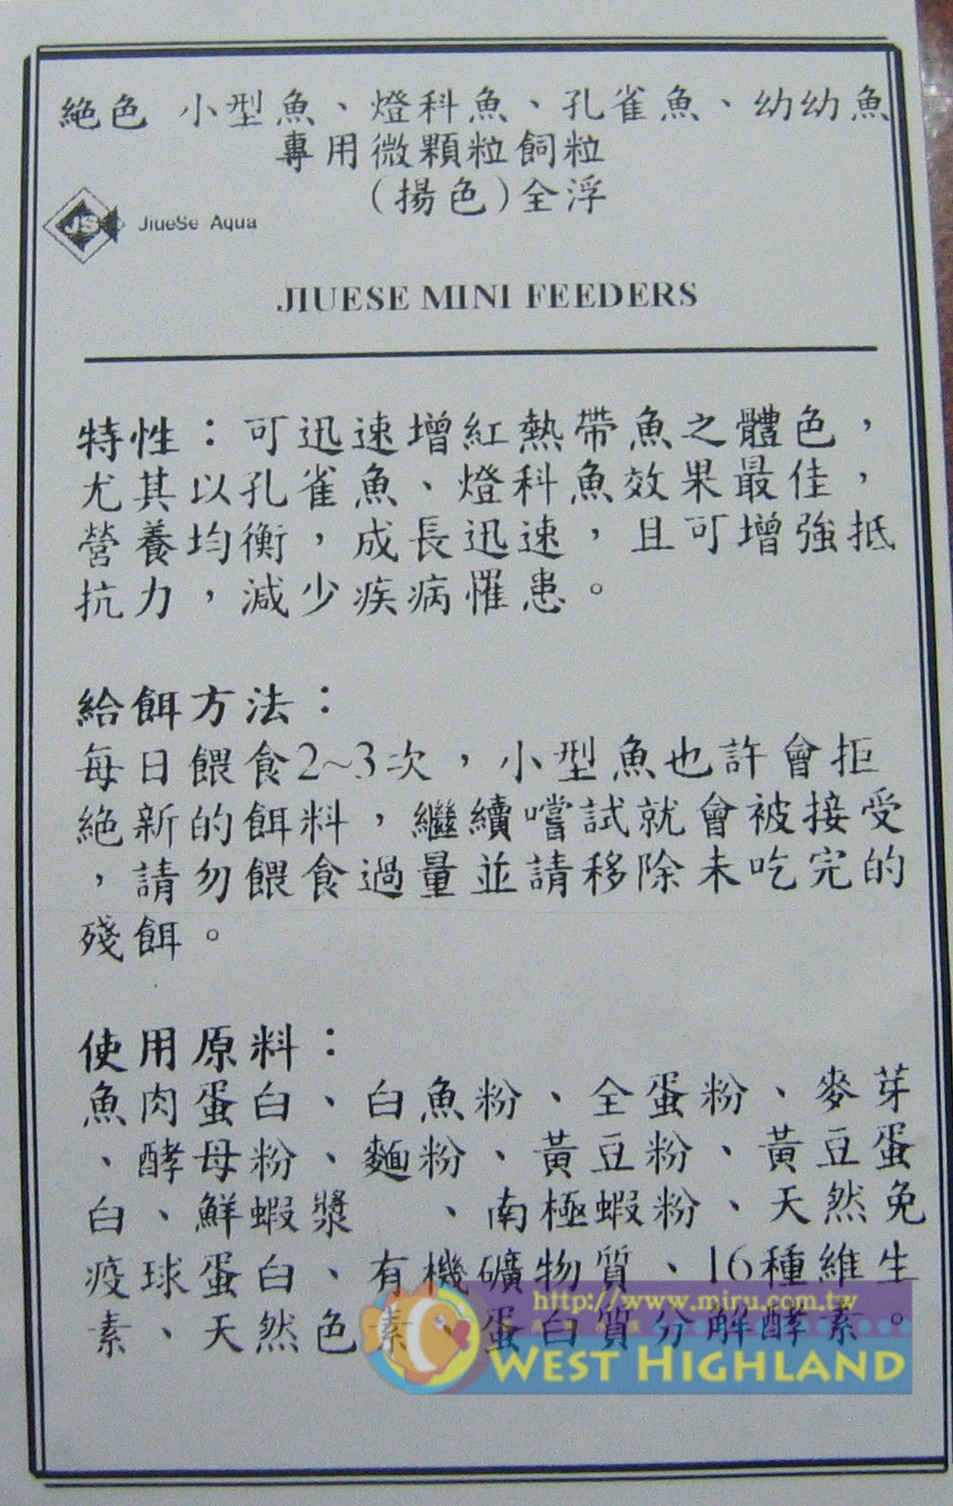 絕色 小型魚、燈科魚、孔雀魚、幼幼魚
專用微顆粒飼粒
(揚色)全浮
JS JiueSe Aqua
JIUESE MINI FEEDERS
特性：可迅速增紅熱帶魚之體色，
尤其以孔雀魚、燈科魚效果最佳，
營養均衡，成長迅速，且可增強抵
抗力，減少疾病罹患。
給餌方法：
每日餵食2~3次，小型魚也許會拒
絕新的餌料，繼續嚐試就會被接受
，請勿餵食過量並請移除未吃完的
殘餌。
使用原料：
魚肉蛋白、白魚粉、全蛋粉、麥芽
、酵母粉、麵粉、黃豆粉、黃豆蛋
白、鮮蝦漿 、南極蝦粉、天然免
疫球蛋白、有機礦物質、16種維生
素、天然色素、蛋白質分解酵素。
http://www.miru.com.tw
WEST HIGHLAND